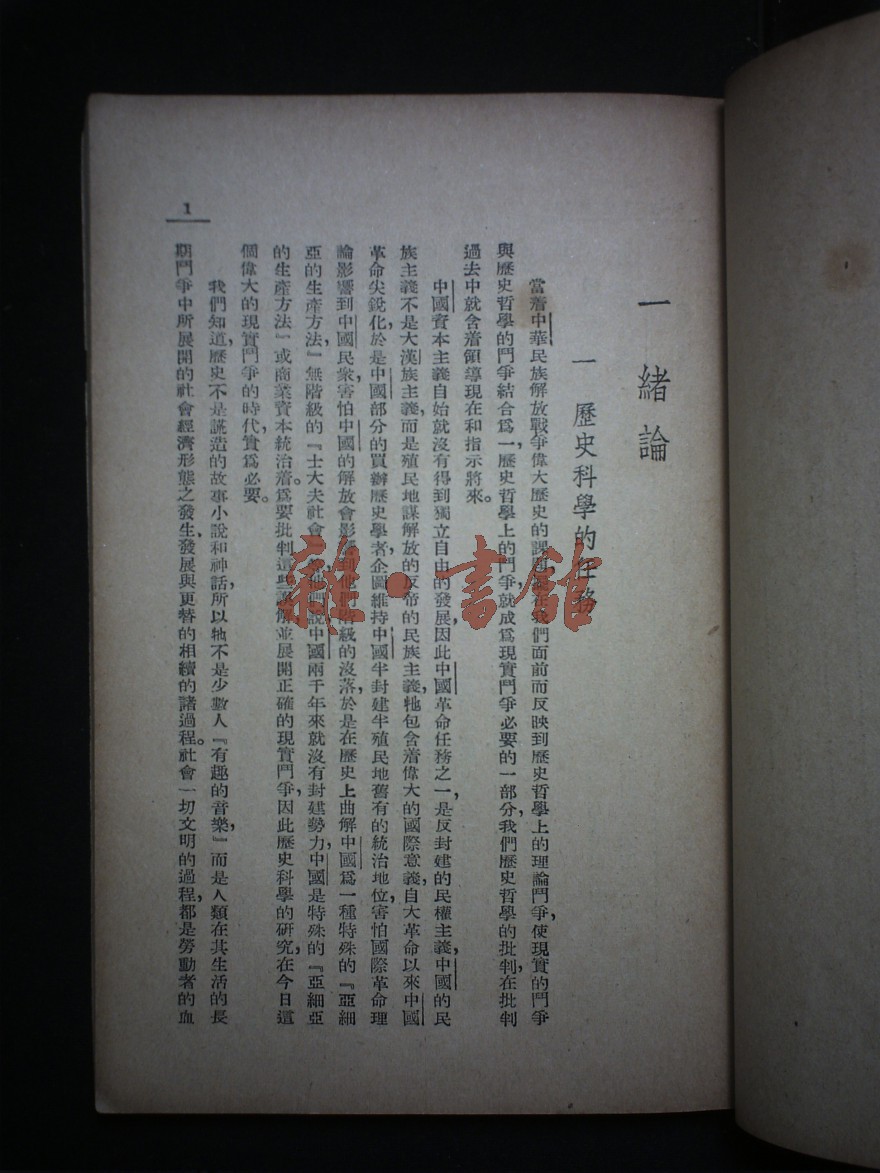 一 緒論
一 歷史科學的任務
當着中華民族解放戰爭偉大歷史的課題 在我們面前而反映到歷史哲學上的理論鬥爭,使現實的鬥爭
與歷史哲學的鬥爭結合爲一,歷史哲學上的鬥爭就成爲現實鬥爭必要的一部分,我們歷史哲學的批判,在批判
過去中就含着領導現在和指示將來。
中國資本主義自始就沒有得到獨立自由的發展,因此中國革命任務之一,是反封建的民權主義,中國的民
族主義不是大漢族主義,而是殖民地謀解放的反帝的民族主義,牠包含着偉大的國際意義,自大革命以來中國
革命尖銳化,於是中國部分的買辦歷史學者,企圖維持中國半封建半殖民地舊有的統治地位,害怕國際革命理
論影響到中國民衆,害怕中國的解放會影響到他們階級的沒落,於是在歷史上曲解中國爲一種特殊的『亞細
亞的生產方法,』無階級的『士大夫社會』 他們說中國兩千年來就沒有封建勢力,中國是特殊的『亞細亞
的生產方法』或商業資本統治着。爲要批判這些誤解,並展開正確的現實鬥爭,因此歷史科學的研究,在今日這
個偉大的現實鬥爭的時代,實爲必要。
我們知道,歷史不是謊造的故事小說和神話,所以牠不是少數人『有趣的音樂,』而是人類在其生活的長
期鬥爭中所展開的社會經濟形態之發生、發展與更替的相續的諸過程。社會一切文明的過程,都是勞動者的血
1
雜·書館